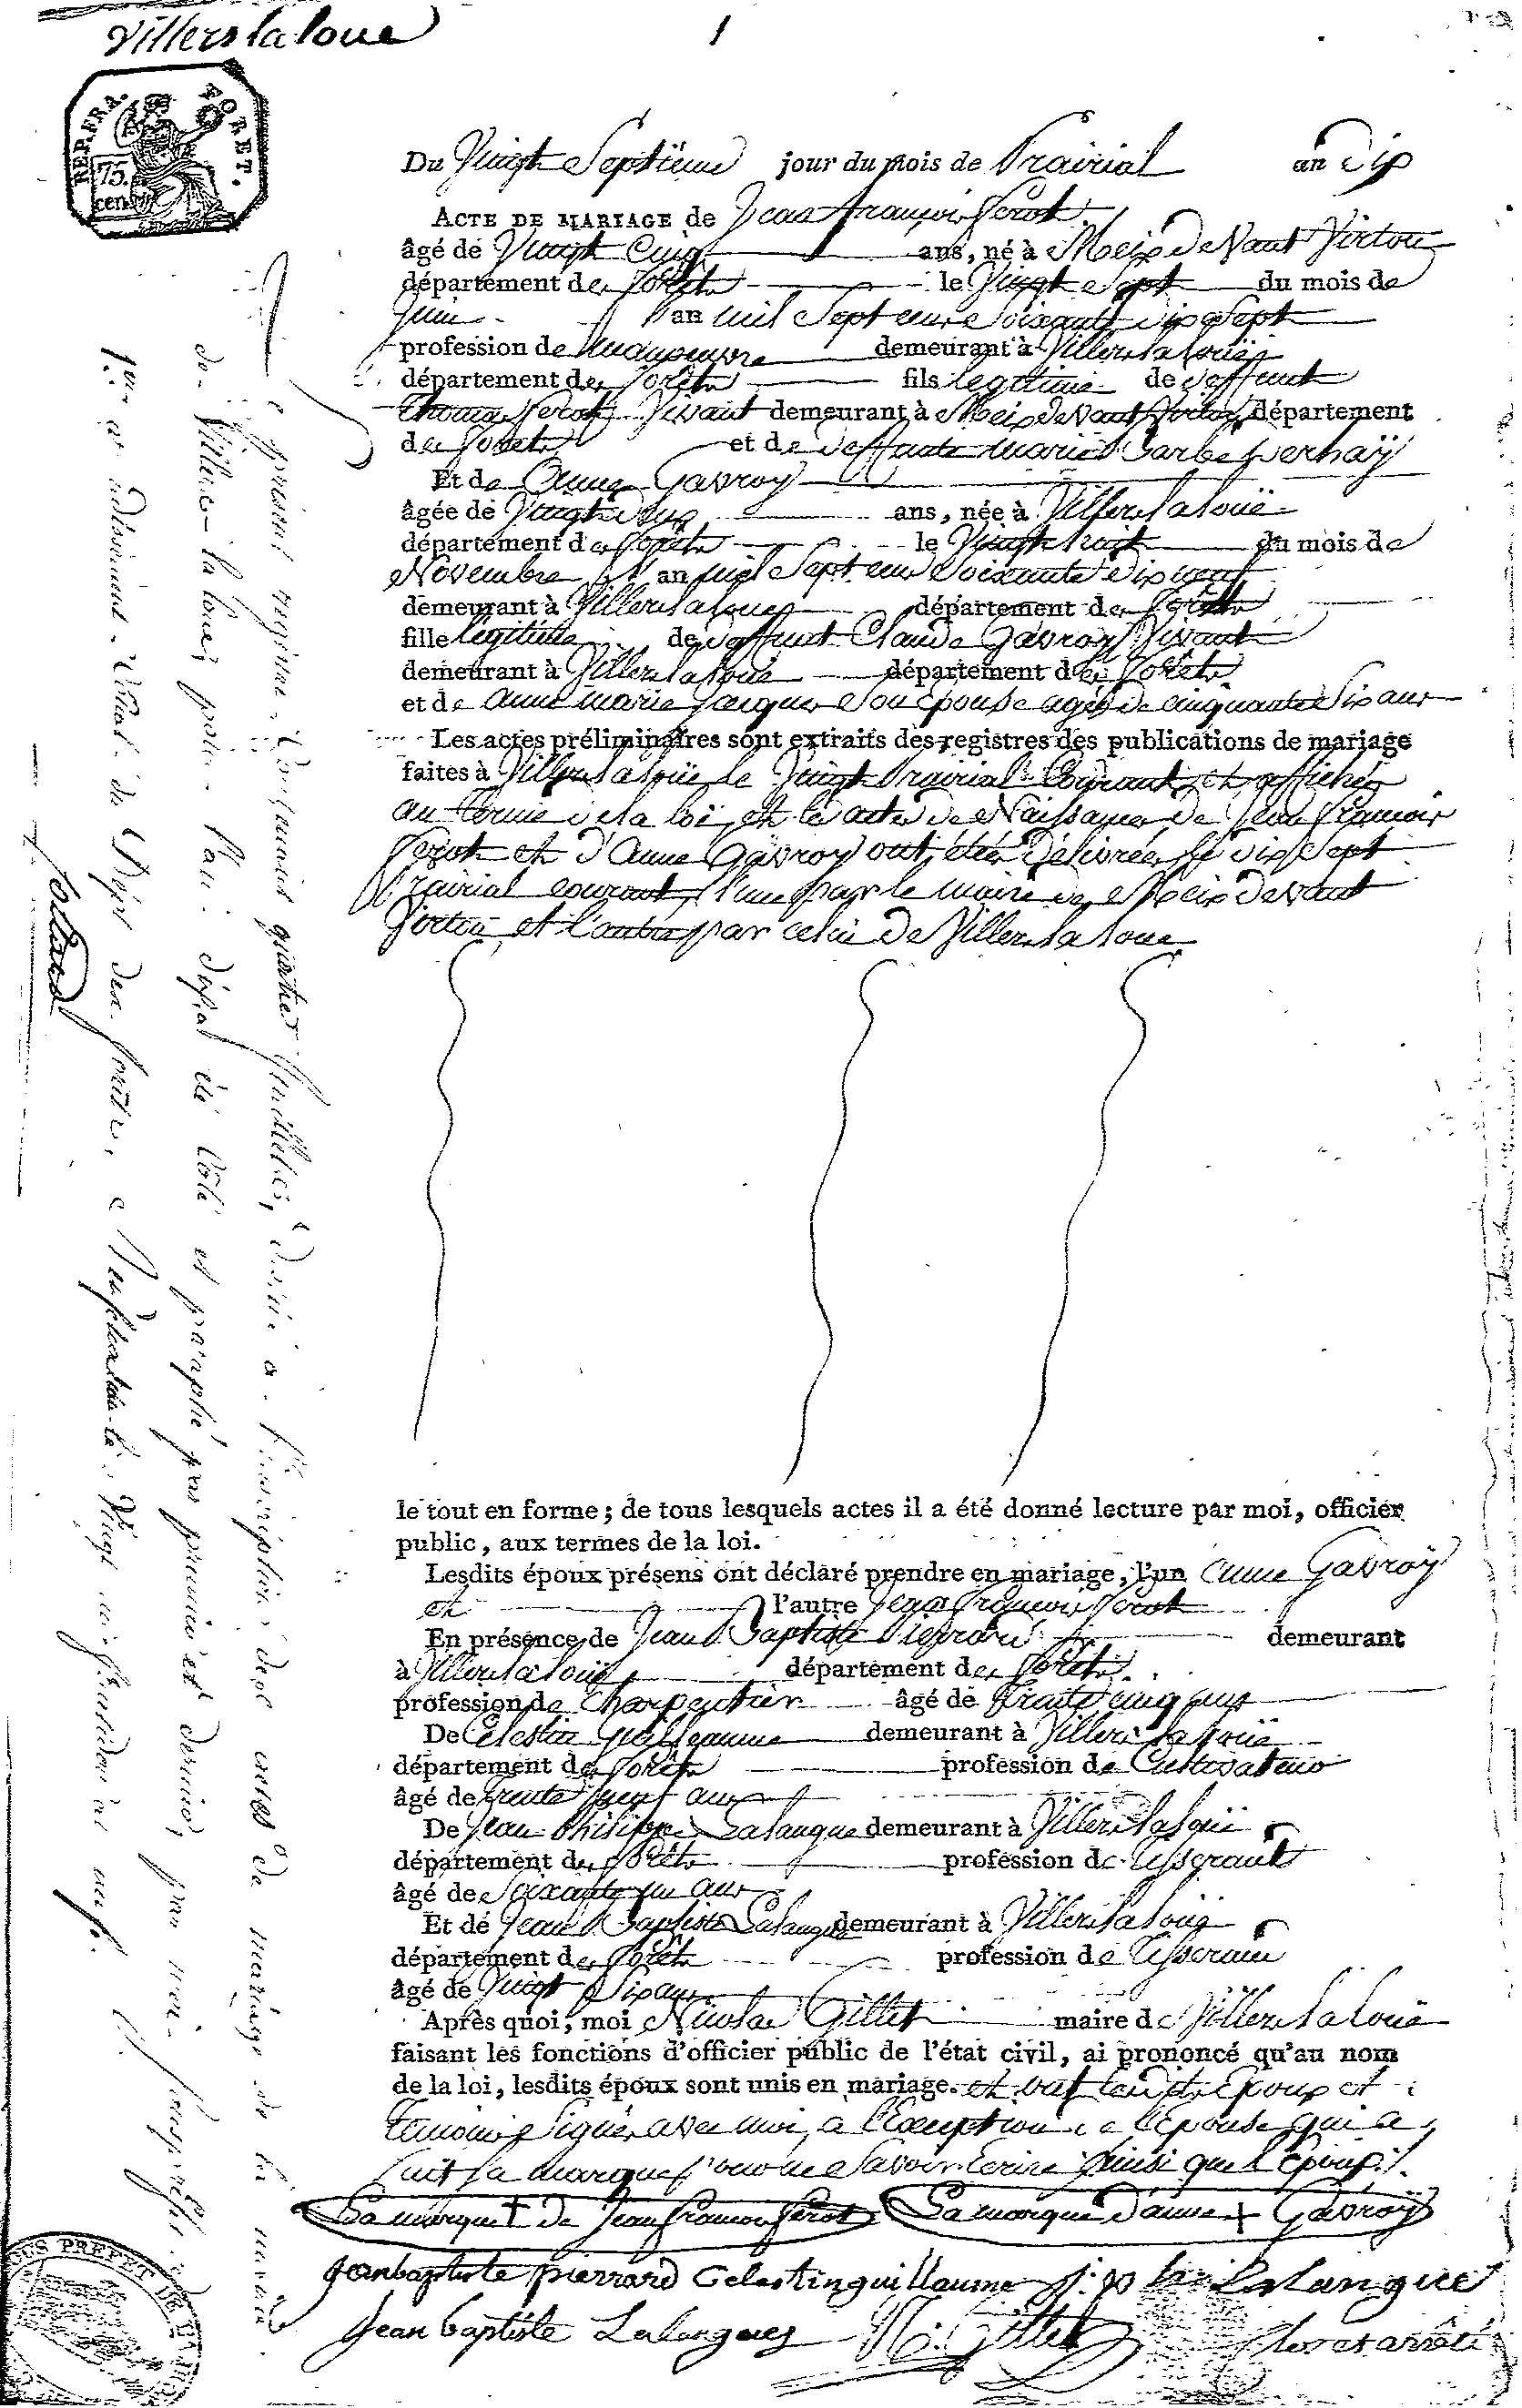 Villers la loue
1
REP. FRA. FORET.
75. cen.
Du Vingt Septieme jour du mois de Prairial an Dix
ACTE DE MARIAGE de Jean François Perot
âgé de Vingt Cinq ans, né à Meix Devant Virton
département des forêts le Vingt Sept du mois de
Juin an mil Sept cent Soixante dix Sept
profession de manoeuvre demeurant à Villers la loüe
département des forêts fils legitime de deffunt
Thomas Perot Vivant demeurant à Meix devant Virton département
des forêts et de deffunte marie Barbe
Et de Anne Gavroy
âgée de Vingt deux ans, née à Villers la loüe
département des forêts le Vingt huit du mois de
Novembre an mil Sept cent Soixante dix neuf
demeurant à Villers la loue département des forêts
fille légitime de deffunt Claude Gavroy Vivant
demeurant à Villers la loüe département des forêts
et de anne marie Jacques Son épouse agée de cinquante Six ans
Les actes préliminaires sont extraits des registres des publications de mariage
faites à Villers la loüe le Vingt Prairial Courant et affichés
au terme de la loi, et les actes de Naissances de Jean François
Perot et d'Anne Gavroy ont été délivrés le dix Sept
Prairial courant, l'une par le maire de Meix devant
Virton et l'autre par celui de Villers la loue
le tout en forme; de tous lesquels actes il a été donné lecture par moi, officier
public, aux termes de la loi.
Lesdits époux présens ont déclaré prendre en mariage, l'un Anne Gavroy
et l'autre Jean François Perot
En présence de Jean Baptiste Pierrard demeurant
à Villers la loüe département des forêts
profession de Charpentier âgé de trente cinq ans
De Celestin Guilleaume demeurant à Villers la loüe
département des forêts profession de Cultivateur
âgé de trente neuf ans
De Jean Philippe Lalangue demeurant à Villers la loüe
département des forêts profession de tisserant
âgé de Soixante un ans
Et de Jean Baptiste Lalangue demeurant à Villers la loüe
département des forêts profession de tisserant
âgé de Vingt Six ans
Après quoi, moi Nicolas Gillet maire de Villers la loüe
faisant les fonctions d'officier public de l'état civil, ai prononcé qu'au nom
de la loi, lesdits époux sont unis en mariage. et ont lesdits époux et
temoins Signés avec moi, a l'Exception de l'Epouse qui a
fait Sa marque pour ne Savoir Ecrire Ainsi que l'époux
La marque + de Jean François Perot La marque d'anne + Gavroy
Jean baptiste pierrard Celestin guillaume j: p Lalangue
Jean baptiste Lalangues N: Gillet
clos et arrêté
Le présent registre, contenant quatre feuillets, destiné à l'inscription des actes de mariage de la mairie
de Villers-la-loue, pour l'an dix, a été coté et paraphé par premier et dernier, par moi Sous préfet du
1er arrondissement du Dépt des forêts, a Neufchateau le Vingt
Collard
SOUS PREFET DE L'ARR